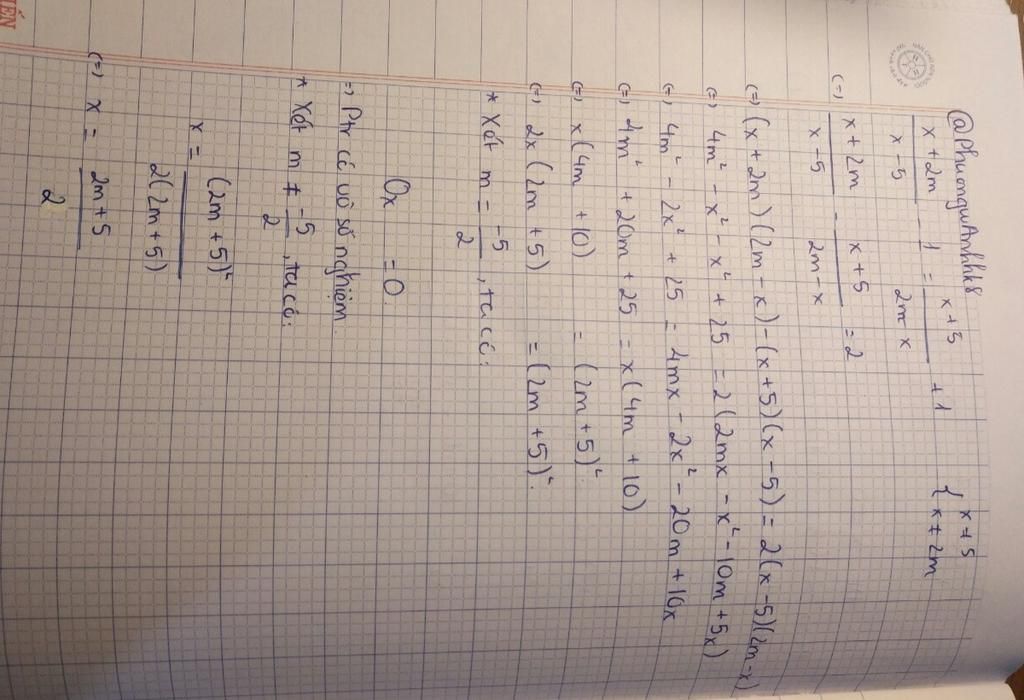 @PhuonguAnhhk8
x + 2m / x - 5 - 1 = x + 5 / 2m - x + 1 { x ≠ 5
x ≠ 2m
(=) x + 2m / x - 5 - x + 5 / 2m - x = 2
(=) (x + 2m)(2m - x) - (x + 5)(x - 5) = 2(x - 5)(2m - x)
(=) 4m² - x² - x² + 25 = 2(2mx - x² - 10m + 5x)
(=) 4m² - 2x² + 25 = 4mx - 2x² - 20m + 10x
(=) 4m² + 20m + 25 = x(4m + 10)
(=) x(4m + 10) = (2m + 5)²
(=) 2x(2m + 5) = (2m + 5)²
* Xét m = -5/2, ta có:
0x = 0
=) Ptr có vô số nghiệm
* Xét m ≠ -5/2, ta có:
x = (2m + 5)² / 2(2m + 5)
(=) x = 2m + 5 / 2